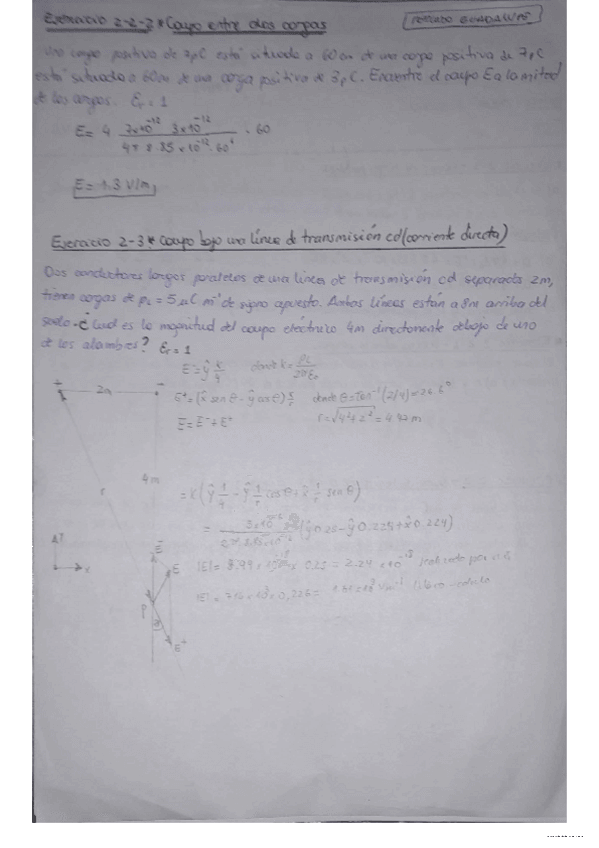 Ejercicio 2-2-2 * Campo entre dos cargas
Una carga positiva de 7pC está situado a 60cm de una carga positiva de 7pC
está situado a 60cm de una carga positiva de 3pC. Encuentre el campo E a la mitad
de las cargas. Er = 1
E= 4 7x10^-12 3x10^-12 / 4π 8.85x10^-12 · 60^4 · 60
E= 1.3 V/m
Ejercicio 2-3* Campo bajo una línea de transmisión cd (corriente directa)
Dos conductores largos paralelos de una línea de transmisión cd separacts 2m,
tienen cargas de ρL = 5μC m^-1 de signo opuesto. Ambas líneas están a 8m arriba del
suelo. ¿Cual es la magnitud del campo eléctrico 4m directamente debajo de uno
de los alambres? Er = 1
E = ŷ k/4 donde k = ρL/2πε0
+ 2m -
E+ = (x̂ sen θ - ŷ cos θ) k/r donde θ = Tan^-1 (2/4) = 26.6°
E = E^- + E^+ r = √4²+2² = 4.47 m
4m
r
= k(ŷ 1/4 - ŷ 1/r cos θ + x̂ 1/r sen θ)
(ŷ 0.25 - ŷ 0.225 + x̂ 0.224)
E^- E
|E| = 8.99 x 0.25 = 2.24 x10^-13
x
P
θ E+